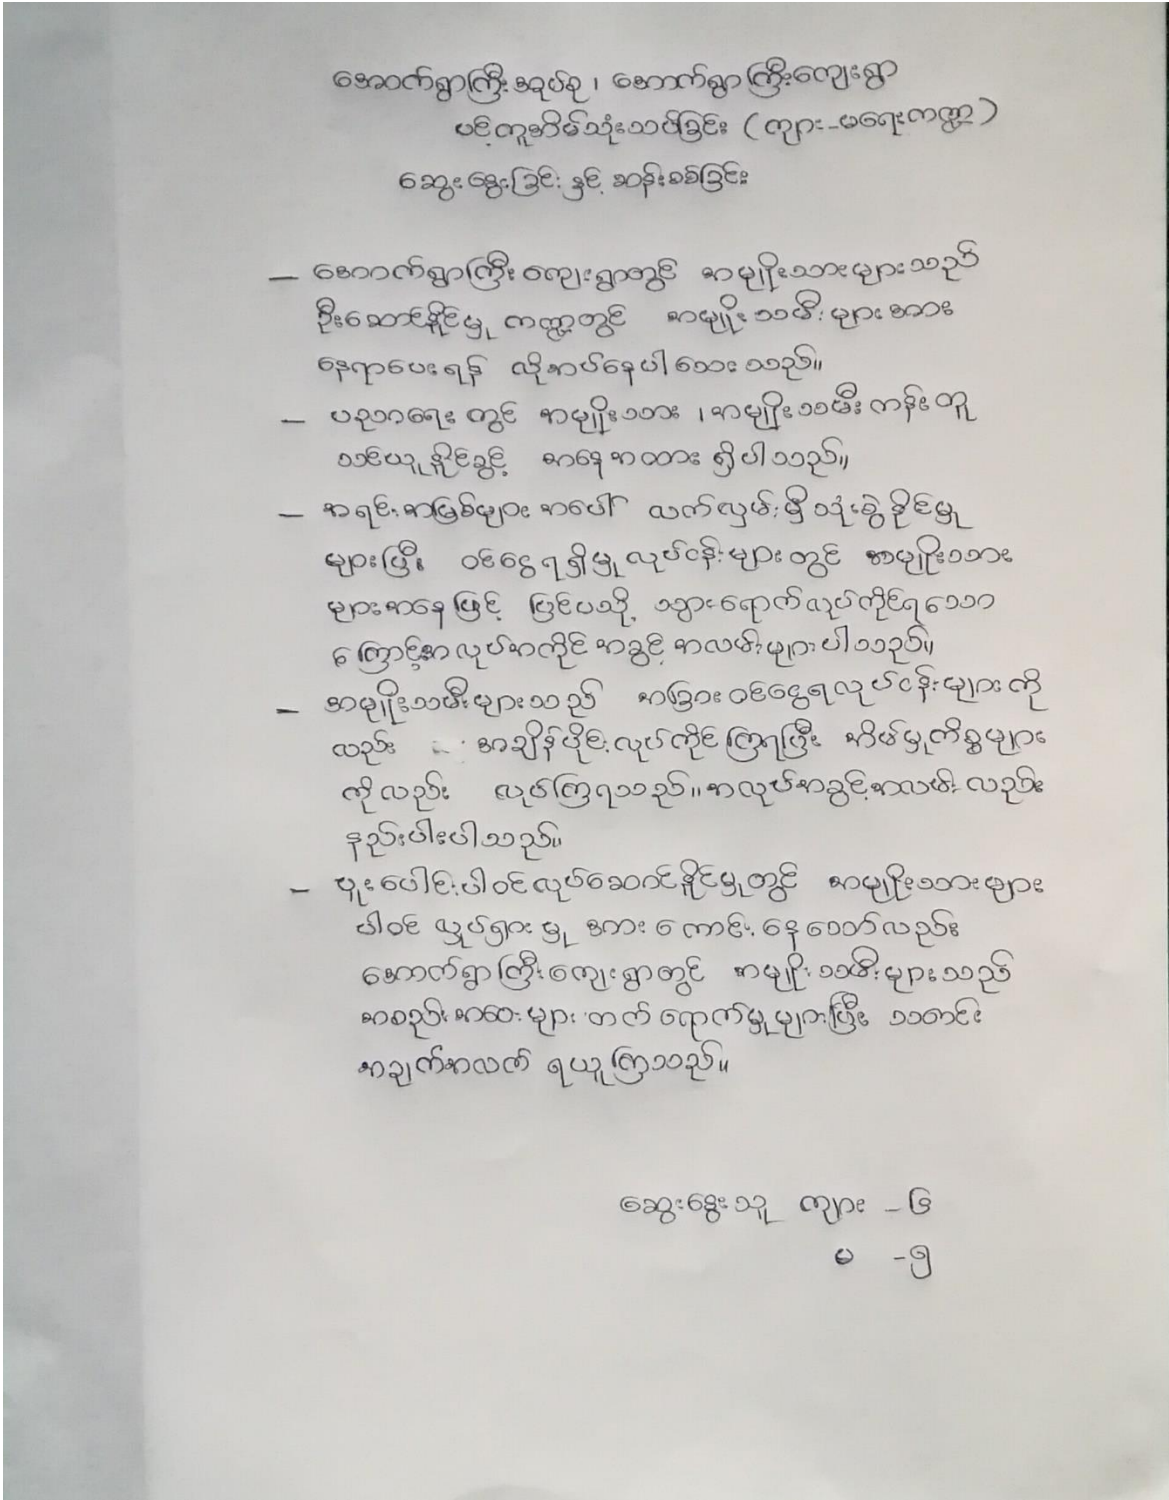 အောက်ရွာကြီးအုပ်စု ၊ အောက်ရွာကြီးကျေးရွာ
ပင့်ကူအိမ်သုံးသပ်ခြင်း (ကျား-မရေးကဏ္ဍ)
ဆွေးနွေးခြင်း နှင့် ဆန်းစစ်ခြင်း
– အောက်ရွာကြီးကျေးရွာတွင် အမျိုးသားများသည်
ဦးဆောင်နိုင်မှု ကဏ္ဍတွင် အမျိုးသမီးများအား
နေရာပေးရန် လိုအပ်နေပါသေးသည်။
– ပညာရေးတွင် အမျိုးသား ၊ အမျိုးသမီးတန်းတူ
သင်ယူနိုင်ခွင့် အနေအထားရှိပါသည်။
– အရင်းအမြစ်များအပေါ် လက်လှမ်းမှီသုံးစွဲနိုင်မှု
များပြီး ဝင်ငွေရရှိမှုလုပ်ငန်းများတွင် အမျိုးသား
များအနေဖြင့် ပြင်ပသို့ သွားရောက်လုပ်ကိုင်ရသော
ကြောင့်အလုပ်အကိုင်အခွင့်အလမ်းများပါသည်။
– အမျိုးသမီးများသည် အခြားဝင်ငွေရလုပ်ငန်းများကို
လည်း အချိန်ပိုင်းလုပ်ကိုင်ကြရပြီး အိမ်မှုကိစ္စများ
ကိုလည်း လုပ်ကြရသည်။အလုပ်အခွင့်အလမ်းလည်း
နည်းပါးပါသည်။
– ပူးပေါင်းပါဝင်လုပ်ဆောင်နိုင်မှုတွင် အမျိုးသားများ
ပါဝင်လှုပ်ရှားမှု အားကောင်းနေသော်လည်း
အောက်ရွာကြီးကျေးရွာတွင် အမျိုးသမီးများသည်
အစည်းအဝေးများတက်ရောက်မှုများပြီး သတင်း
အချက်အလက်ရယူကြသည်။
ဆွေးနွေးသူ ကျား -၆
မ -၅